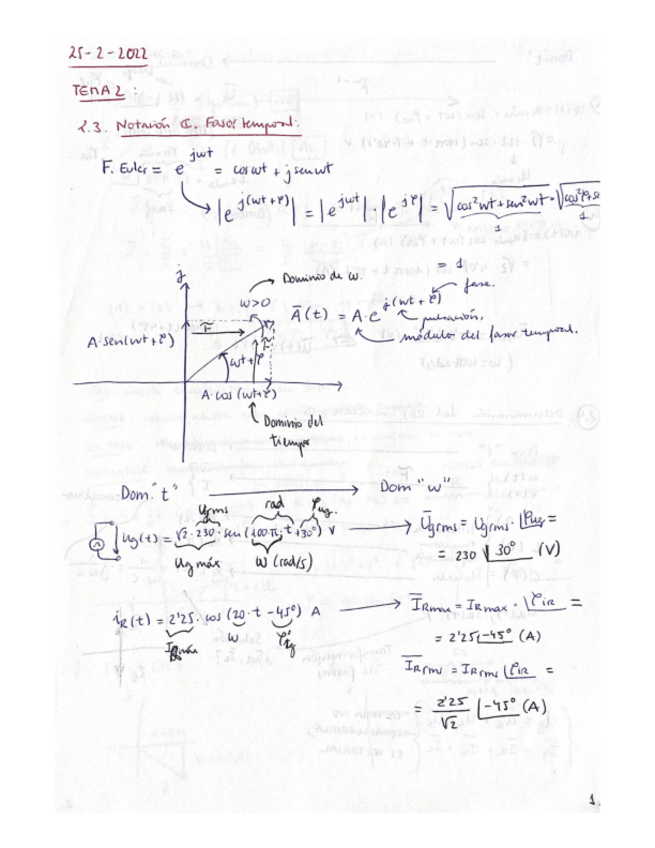 25-2-2022
TEMA 2:
2.3. Notación C. Fasor temporal.
F. Euler = e^jwt = coswt + jsenwt
|e^j(wt+φ)| = |e^jwt| · |e^jφ| = √cos²wt+sen²wt · √cos²φ+se
1 1
= 1
j
Dominio de w.
w>0
fase.
Ā(t) = A·e^j(wt+φ)
pulsación.
módulo del fasor temporal.
A·sen(wt+φ)
wt+φ
A·cos(wt+φ)
Dominio del
tiempo
Dom. "t" Dom "w"
Ugrms rad φug.
Ug(t) = √2·230·sen(100π·t+30°) V
Ug máx w (rad/s)
Ūgrms = Ugrms·|φug =
= 230 |30° (V)
iR(t) = 2'25·cos(20·t-45°) A
IRmáx w
ĪRmax = IRmax·|φiR =
= 2'25|-45° (A)
ĪRrms = IRrms|φiR =
= 2'25/√2 |-45° (A)
1.